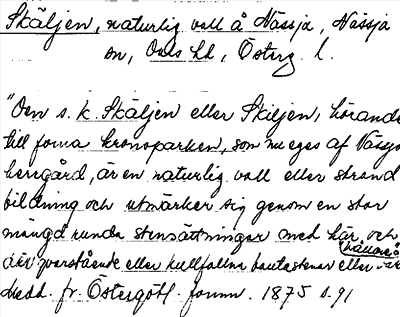 Skäljen, naturlig vall å Nässja, Nässja
sn, Dals hd, Österg. l.
"Den s. k. Skäljen eller Skiljen, hörande
till forna kronoparken, som nu eges af Nässja
herrgård, är en naturlig vall eller strand
bildning och utmärker sig genom en stor
mängd runda stensättningar med här och
där qvarstående eller kullfallna bautastenar eller
Medd. fr. Östergötl. fornm. 1875 s. 91